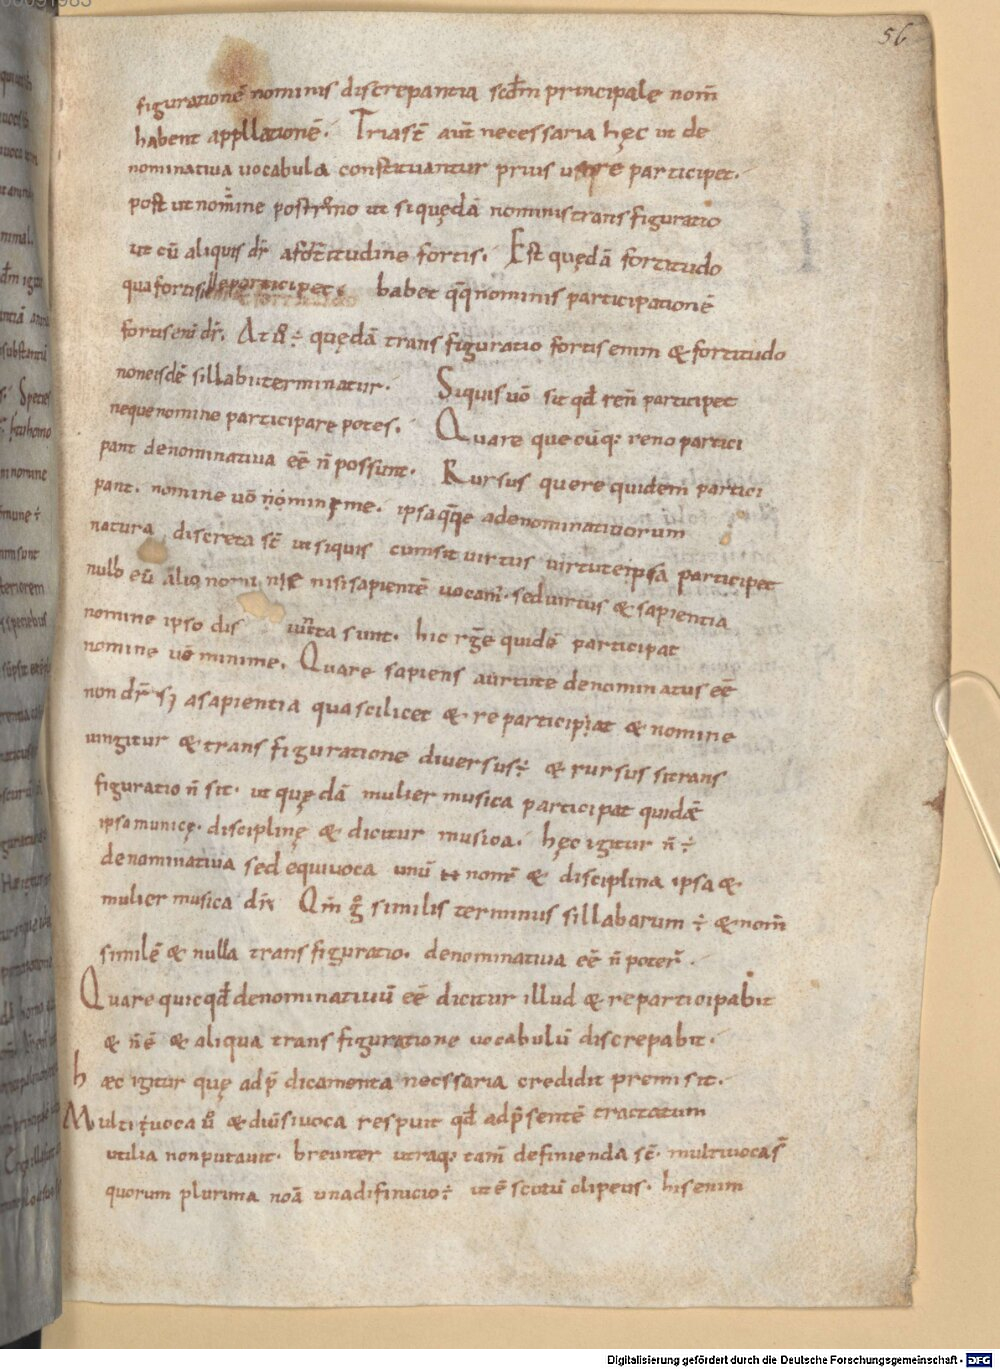 56
figurationē nominis discrepantia scdm principale nom̄
habent appllationē. Tria st̄ aut̄ necessaria hęc ut de
nominativa vocabula constituantur prius ut re participet.
post ut nomine postremo ut si quędā nominis transfiguratio
ut cū aliquis dr̄ a fortitudine fortis. Est quędā fortitudo
qua fortis ille participet. habet q̄q̄ nominis participationē
fortis enī dr̄. At ÷ quędā transfiguratio fortis enim & fortitudo
non eisdē sillabis terminatur. Siquis uō sit qd̄ re n̄ participet
neque nomine participare potest. Quare quecūq; re no partici
pant denominativa eē n̄ possunt. Rursus quere quidem partici
pant. nomine uō minime. ipsa q̄q̄e a denominativorum
natura discreta st̄ ut siquis cum sit virtus virtute ipsa participet
nullo eū alio nomi nise nisi sapientē vocam̄. sed virtus & sapientia
nomine ipso dis iuncta sunt. hic rḡe quidē participat
nomine uō minime. Quare sapiens a uirtute denominatus eē
non dr̄ sȝ a sapientia qua scilicet & re participat & nomine
iungitur & transfiguratione diversus ÷ & rursus si trans
figuratio n̄ sit. ut quędā mulier musica participat quidē
ipsa municę. disciplinę & dicitur musica. hęc igitur n̄ ÷
denominativa sed equivoca unū nom̄ & disciplina ipsa &
mulier musica dr̄ Qm̄ g̊ similis terminus sillabarum ÷ & nom̄
similē & nulla transfiguratio. denominativa eē n̄ poter̄.
Quare quicqd̄ denominativū eē dicitur illud & re participabit
& n̄e & aliqua transfiguratione vocabulū discrepabit.
hæc igitur quę ad p̄dicamenta necssaria credidit premisit.
Multivoca u̇ & diūsivoca respuit qd̄ ad p̄sentē tractatum
utilia non putavit. breviter utraq; tam̄ definienda st̄. multivoca st̄
quorum plurima noā una difinicio ÷ ut ē scutū clipeus. his enim
Digitalisierung gefördert durch die Deutsche Forschungsgemeinschaft - DFG